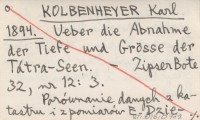 KOLBENHEYER Karl.
1894. Ueber die Abnahme
der Tiefe und Grösse der
Tátra-Seen. — Zipser Bote
32, nr 12: 3.
Porównanie danych z ka-
tastru i z pomiarów E. Dzie-